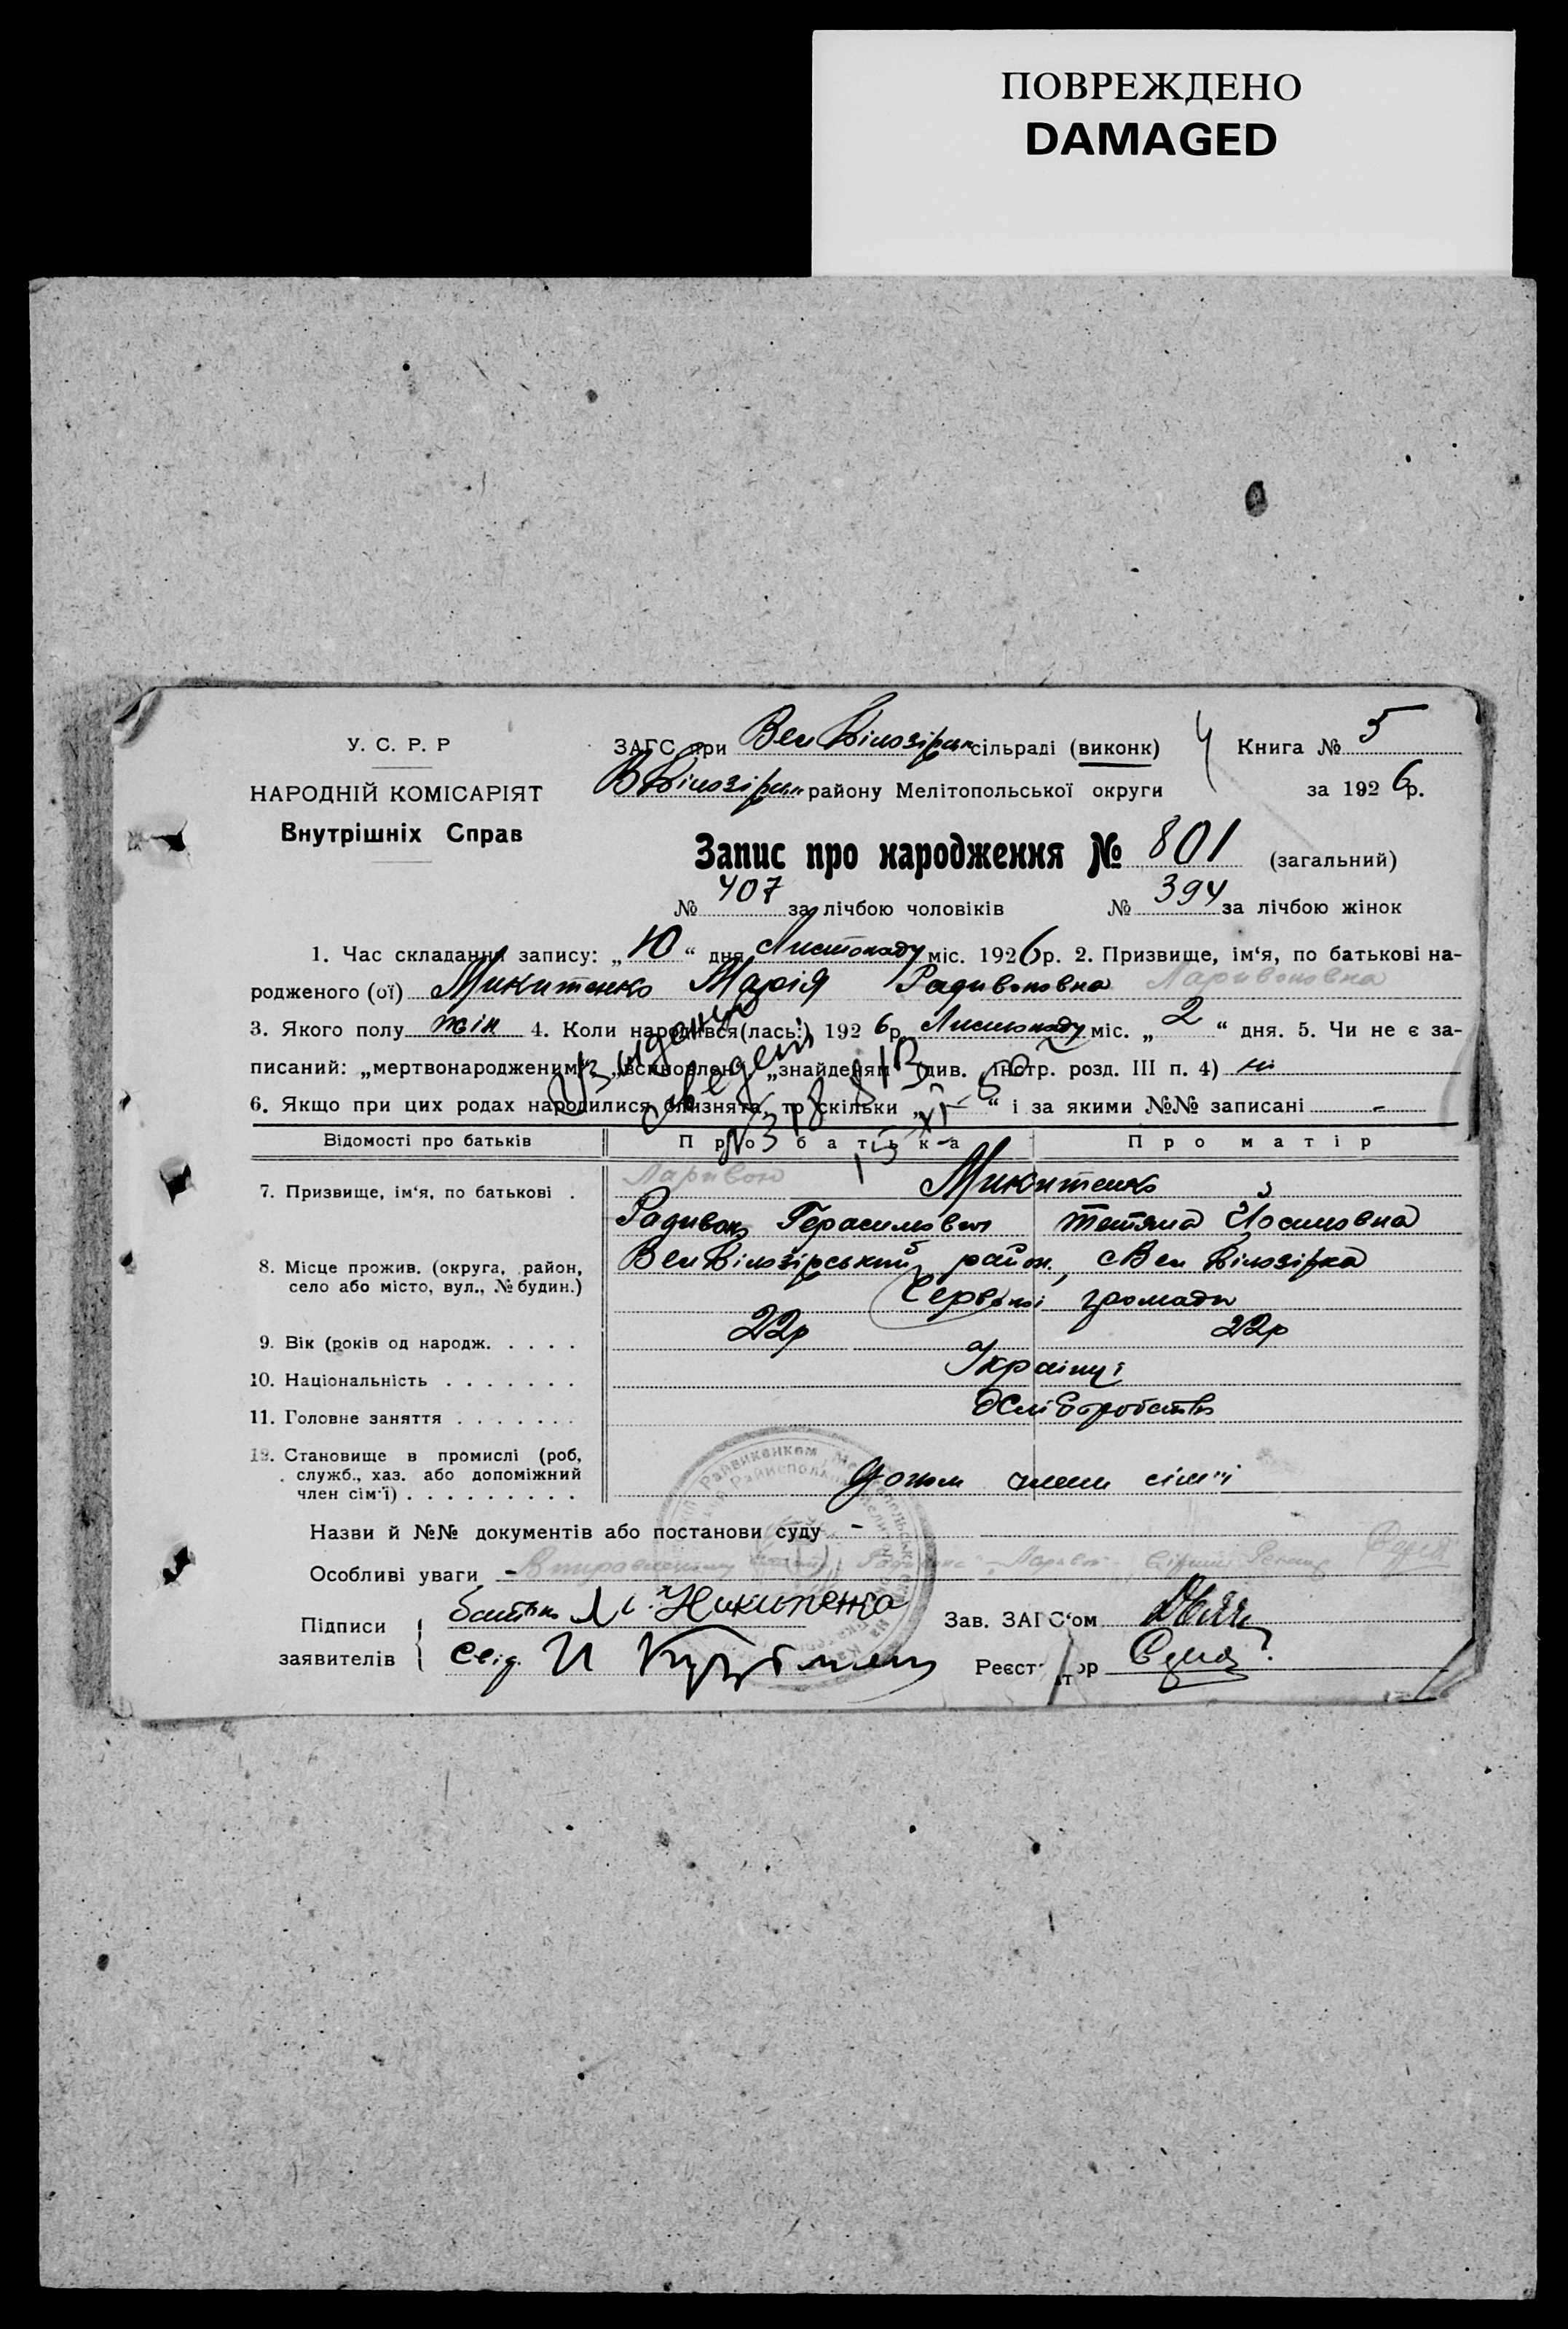 ПОВРЕЖДЕНО
DAMAGED
У. С. Р. Р
НАРОДНІЙ КОМІСАРІЯТ
Внутрішніх Справ
ЗАГС при Вел Білозірськ сільраді (виконк) Книга № 5
В Білозірськ району Мелітопольської округи за 1926р.
Запис про народження № 801 (загальний)
№ 407 за лічбою чоловіків № 394 за лічбою жінок
1. Час складання запису: „10“ дня Листопаду міс. 1926р. 2. Призвище, ім‘я, по батькові на-
родженого (ої) Микитенко Марія Радивоновна Ларивоновна
3. Якого полу жін 4. Коли народився(лась:) 1926р. Листопаду міс. „2“ дня. 5. Чи не є за-
писаний: „мертвонародженим“ „всиновлен“, „знайденям“ (див. інстр. розд. III п. 4) ні
6. Якщо при цих родах народилися близнята, то скільки „ “ і за якими №№ записані -
Відомості про батьків Про батька Про матір
7. Призвище, ім‘я, по батькові . Ларивон Микитенко
Радивон Герасимович Тетяна Йосиповна
8. Місце прожив. (округа, район, село або місто, вул., № будин.) Вел Білозірський район, с Вел Білозірка
Червоної громади
9. Вік (років од народж. . . . . 22р 22р
10. Національність . . . . . . . Українці
11. Головне заняття . . . . . . . Хліборобство
12. Становище в промислі (роб, служб., хаз. або допоміжний член сім‘ї) . . . . . . . . . допом члени сім'ї
Назви й №№ документів або постанови суду -
Особливі уваги -
Підписи заявителів { батько Микитенко Зав. ЗАГС‘ом
Свід. И Реєстратор